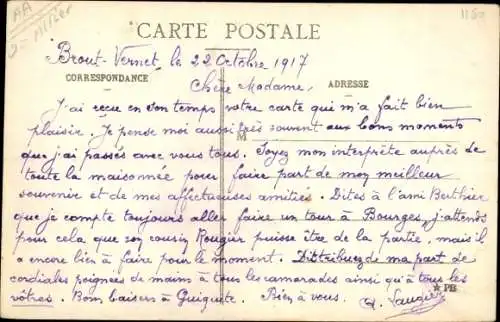 AA
CARTE POSTALE
Brout-Vernet, le 22 Octobre 1917
CORRESPONDANCE
ADRESSE
Chère Madame,
J'ai reçu en son temps votre carte qui m'a fait bien
plaisir. Je pense moi aussi très souvent aux bons moments
que j'ai passés avec vous tous. Soyez mon interprète auprès de
toute la maisonnée pour faire part de mon meilleur
souvenir et de mes affectueuses amitiés. Dites à l'ami Berthier
que je compte toujours aller faire un tour à Bourges, j'attends
pour cela que son cousin Rougier puisse être de la partie, mais il
a encore bien à faire pour le moment. Distribuez de ma part de
cordiales poignées de mains à tous les camarades ainsi qu'à tous les
vôtres. Bons baisers à Guiguite. Bien à vous.
PB